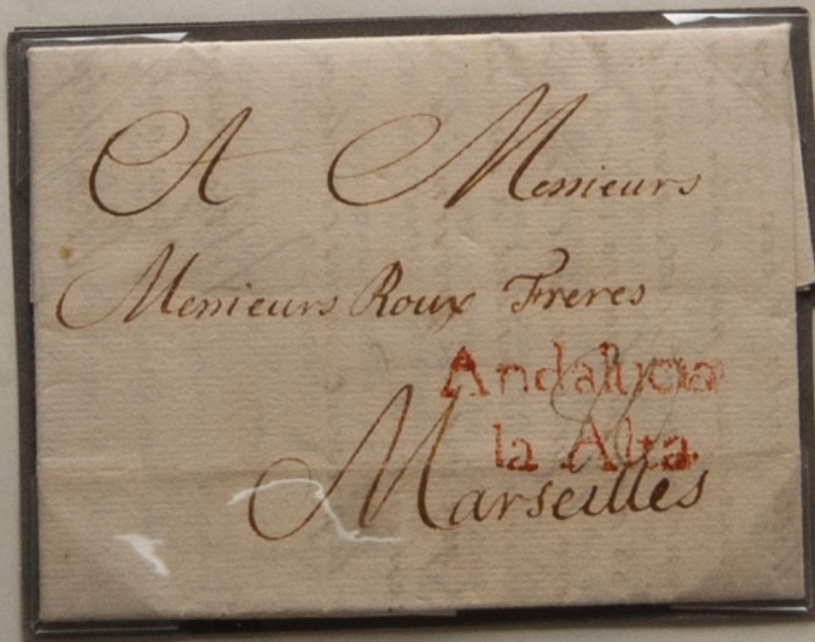 A Messieurs
Messieurs Roux Freres
Andalucia
la Alta
Marseilles